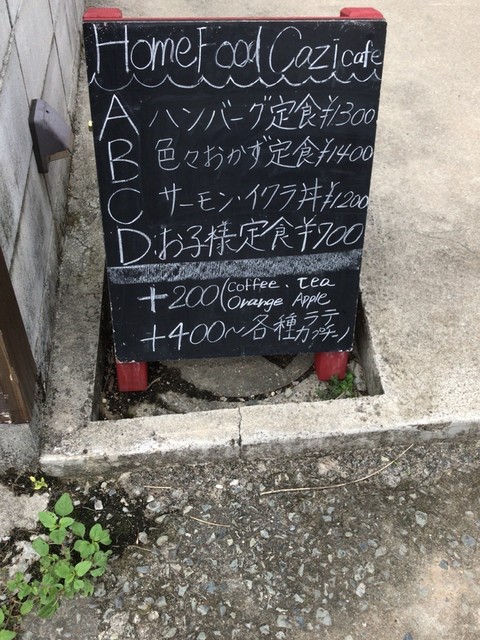 Home Food Cazi cafe
A ハンバーグ定食¥1300
B 色々おかず定食¥1400
C サーモン・イクラ丼¥1200
D.お子様定食¥700
+200(Coffee・tea
Orange Apple
+400〜各種ラテ
カプチーノ